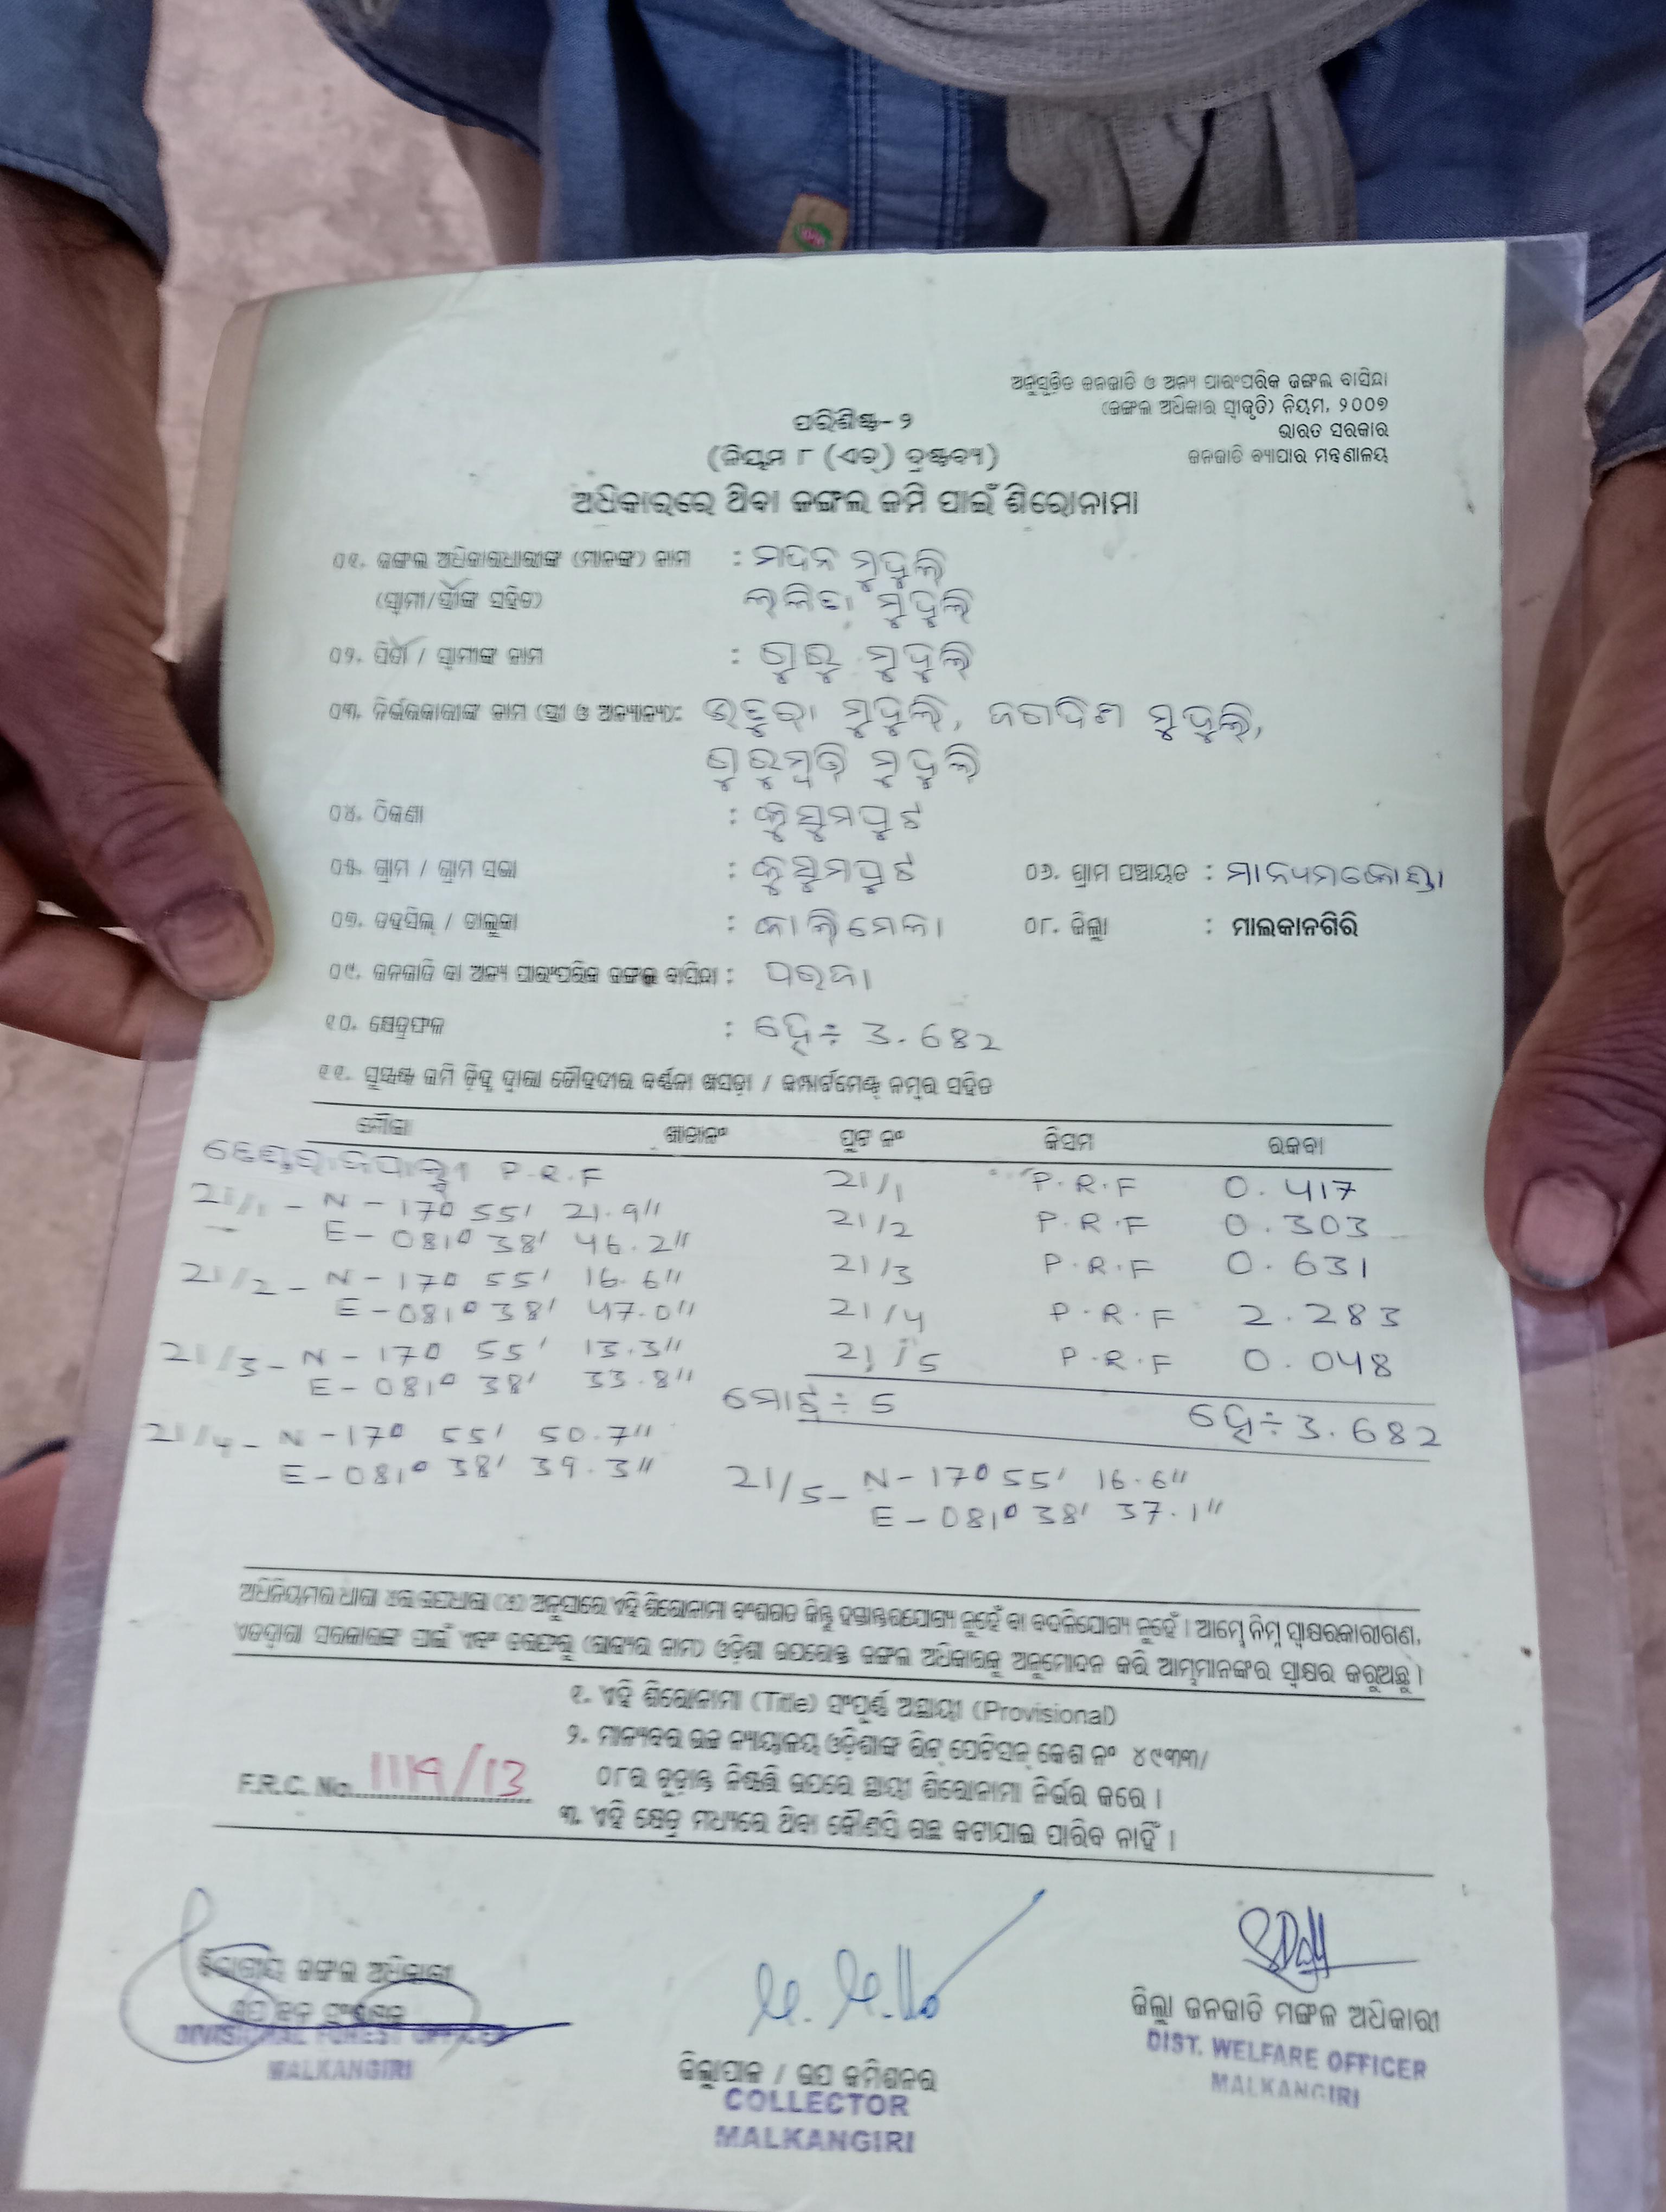 ଅନୁସୂଚିତ ଜନଜାତି ଓ ଅନ୍ୟ ପାରଂପରିକ ଜଙ୍ଗଲ ବାସିନ୍ଦା
(ଜଙ୍ଗଲ ଅଧିକାର ସ୍ୱୀକୃତି) ନିୟମ, ୨୦୦୭
ଭାରତ ସରକାର
ଜନଜାତି ବ୍ୟାପାର ମନ୍ତ୍ରଣାଳୟ
ପରିଶିଷ୍ଟ- ୨
(ନିୟମ ୮ (ଏଚ୍) ଦ୍ରଷ୍ଟବ୍ୟ)
ଅଧିକାରରେ ଥିବା ଜଙ୍ଗଲ ଜମି ପାଇଁ ଶିରୋନାମା
୦୧. ଜଙ୍ଗଲ ଅଧିକାରଧାରୀଙ୍କ (ମାନଙ୍କ) ନାମ : ମାଦନ ମୁଦୁଲି
(ସ୍ୱାମୀ/ସ୍ତ୍ରୀଙ୍କ ସହିତ) ଲଳିତା ମୁଦୁଲି
୦୨. ପିତା / ସ୍ୱାମୀଙ୍କ ନାମ : ଗୁରୁ ମୁଦୁଲି
୦୩. ନିର୍ଭରକାରୀଙ୍କ ନାମ (ସ୍ତ୍ରୀ ଓ ଅନ୍ୟାନ୍ୟ): ମୁଦୁଲି, ଜଗଦିଶ ମୁଦୁଲି,
ମୁଦୁଲି
୦୪. ଠିକଣା : କୁସୁମପୁଟ
୦୫. ଗ୍ରାମ / ଗ୍ରାମ ସଭା : କୁସୁମପୁଟ ୦୬. ଗ୍ରାମ ପଞ୍ଚାୟତ : ମାନ୍ୟମକୋଣ୍ଡା
୦୭. ତହସିଲ୍ / ତାଲୁକା : କାଲିମେଳା ୦୮. ଜିଲ୍ଲା : ମାଲକାନଗିରି
୦୯. ଜନଜାତି ବା ଅନ୍ୟ ପାରଂପରିକ ଜଙ୍ଗଲ ବାସିନ୍ଦା : ପରଜା
୧୦. କ୍ଷେତ୍ରଫଳ : ହେ÷ 3.682
୧୧. ସୁସ୍ପଷ୍ଟ ଜମି ଚିହ୍ନ ଦ୍ୱାରା ଚୌହଦୀର ବର୍ଣ୍ଣନା ଖସଡ଼ା / କମ୍ପାର୍ଟମେଣ୍ଟ ନମ୍ବର ସହିତ
ମୌଜା ଖାତାନଂ ପ୍ଲଟ ନଂ କିସମ ରକବା
P.R.F 21/1 P.R.F 0.417
21/1 - N - 17° 55' 21.9" 21/2 P.R.F 0.303
E - 081° 38' 46.2"
21/2 - N - 17° 55' 16.6" 21/3 P.R.F 0.631
E - 081° 38' 47.0" 21/4 P.R.F 2.283
21/3 - N - 17° 55' 13.3" 21/5 P.R.F 0.048
E - 081° 38' 33.8" ମୋଟ ÷ 5 ହେ÷ 3.682
21/4 - N - 17° 55' 50.7"
E - 081° 38' 39.3"
21/5 - N - 17° 55' 16.6"
E - 081° 38' 37.1"
ଅଧିନିୟମର ଧାରା ୪ର ଉପଧାରା (୪) ଅନୁସାରେ ଏହି ଶିରୋନାମା ବଂଶଗତ କିନ୍ତୁ ହସ୍ତାନ୍ତରଯୋଗ୍ୟ ନୁହେଁ ବା ବଦଳିଯୋଗ୍ୟ ନୁହେଁ । ଆମ୍ଭେ ନିମ୍ନ ସ୍ୱାକ୍ଷରକାରୀଗଣ,
ଏତଦ୍ଦ୍ୱାରା ସରକାରଙ୍କ ପାଇଁ ଏବଂ ତରଫରୁ (ରାଜ୍ୟର ନାମ) ଓଡ଼ିଶା ଉପରୋକ୍ତ ଜଙ୍ଗଲ ଅଧିକାରକୁ ଅନୁମୋଦନ କରି ଆମ୍ଭମାନଙ୍କର ସ୍ୱାକ୍ଷର କରୁଅଛୁ ।
୧. ଏହି ଶିରୋନାମା (Title) ସଂପୂର୍ଣ୍ଣ ଅସ୍ଥାୟୀ (Provisional)
୨. ମାନ୍ୟବର ଉଚ୍ଚ ନ୍ୟାୟାଳୟ ଓଡ଼ିଶାଙ୍କ ରିଟ୍ ପେଟିସନ୍ କେଶ ନଂ ୪୯୩୩/
୦୮ର ଚୂଡ଼ାନ୍ତ ନିଷ୍ପତ୍ତି ଉପରେ ସ୍ଥାୟୀ ଶିରୋନାମା ନିର୍ଭର କରେ ।
୩. ଏହି କ୍ଷେତ୍ର ମଧ୍ୟରେ ଥିବା କୌଣସି ଗଛ କଟାଯାଇ ପାରିବ ନାହିଁ ।
F.R.C. No. 1119/13
ବିଭାଗୀୟ ଜଙ୍ଗଲ ଅଧିକାରୀ
ଉପ ବନ ସଂରକ୍ଷକ
DIVISIONAL FOREST OFFICER
MALKANGIRI
ଜିଲ୍ଲାପାଳ / ଉପ କମିଶନର
COLLECTOR
MALKANGIRI
ଜିଲ୍ଲା ଜନଜାତି ମଙ୍ଗଳ ଅଧିକାରୀ
DIST. WELFARE OFFICER
MALKANGIRI